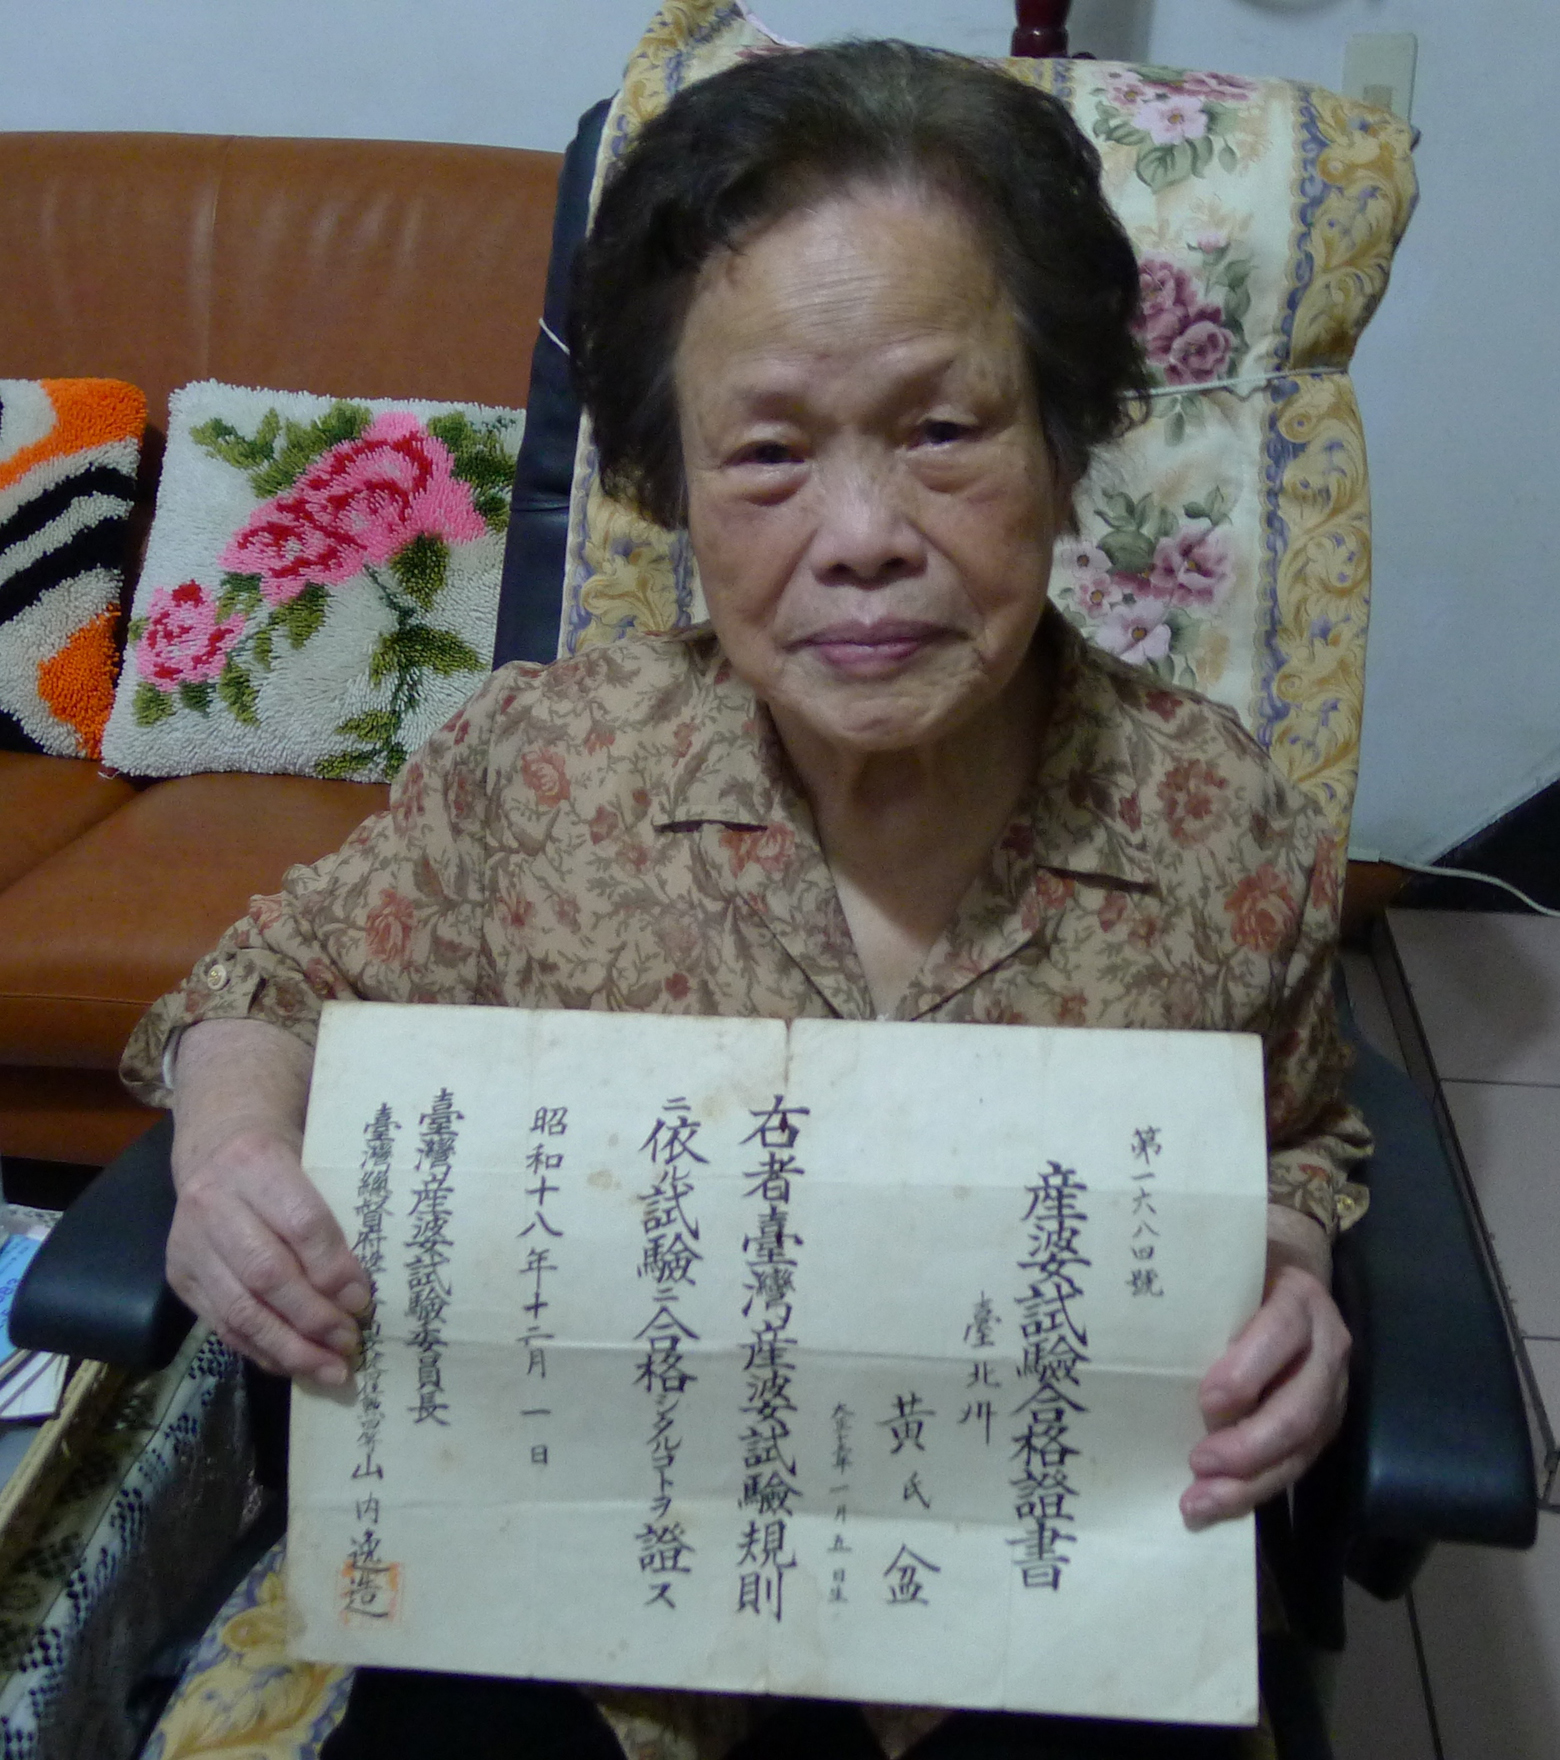 第一六八四號
産婆試驗合格證書
臺北州
黃氏盆
大正十五年一月五日生
右者臺灣産婆試驗規則
ニ依ル試驗ニ合格シタルコトヲ證ス
昭和十八年十二月一日
臺灣産婆試驗委員長
臺灣總督府 山內逸造